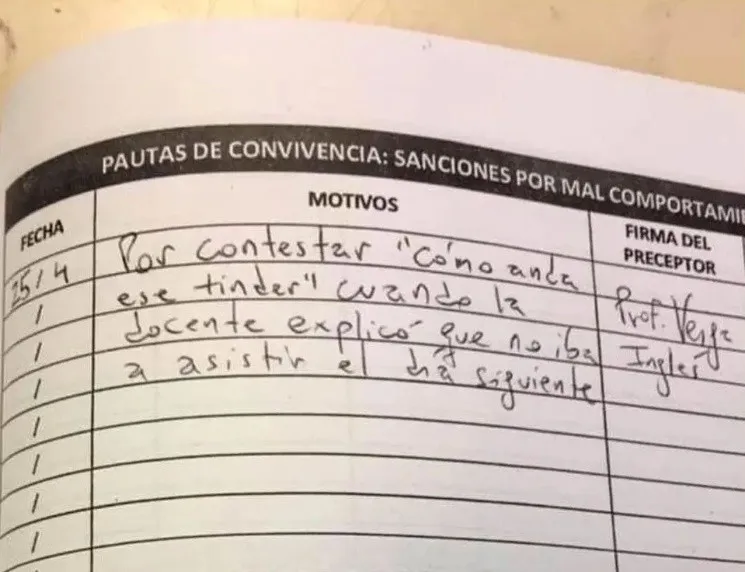 PAUTAS DE CONVIVENCIA: SANCIONES POR MAL COMPORTAMI
FECHA
MOTIVOS
FIRMA DEL
PRECEPTOR
25/4
Por contestar "cómo anda
ese tinder" cuando la
docente explicó que no iba
a asistir el día siguiente
Prof. Verga
Inglés
/
/
/
/
/
/
/
/